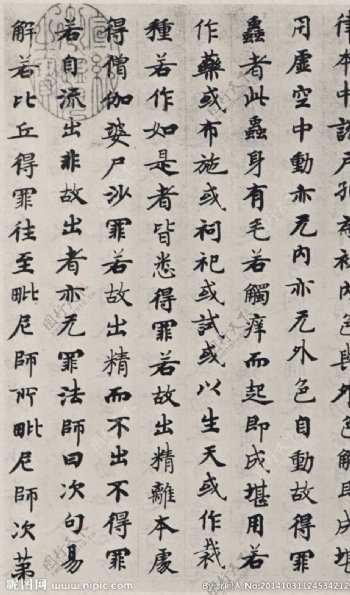 律本中說户孔為初內色解具成堪
用虛空中動亦无內亦无外色自動故得罪
蟲者此蟲身有毛若觸痒而起即成堪用若
作藥或布施或祠祀或試或以生天或作栽
種若作如是者皆悉得罪若故出精離本處
得僧伽婆尸沙罪若故出精而不出不得罪
若自流出非故出者亦无罪法師曰次句易
解若比丘得罪往至毗尼師所毗尼師次第
昵图网 www.nipic.com
No:20141031124534212